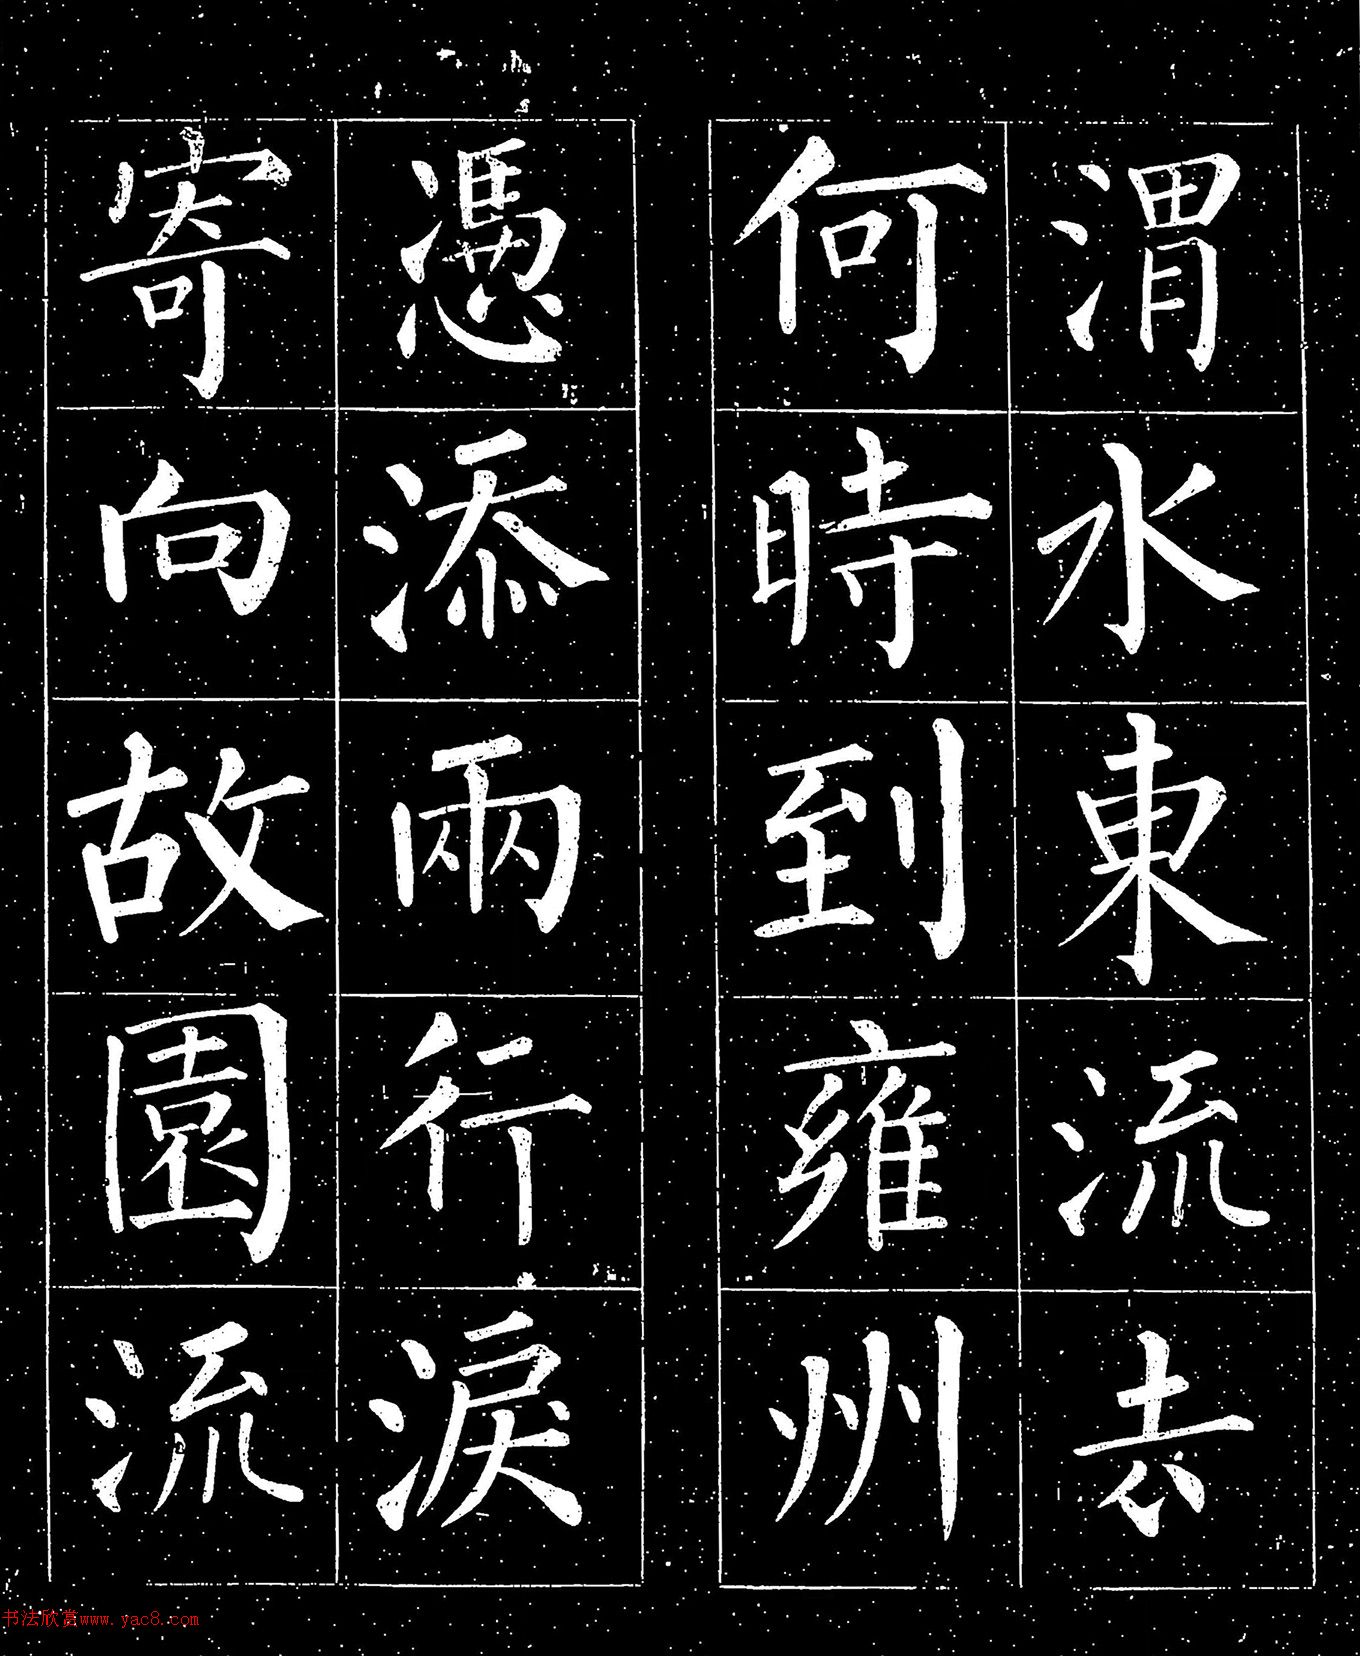 渭水東流去
何時到雍州
憑添兩行淚
寄向故園流
书法欣赏www.yac8.com